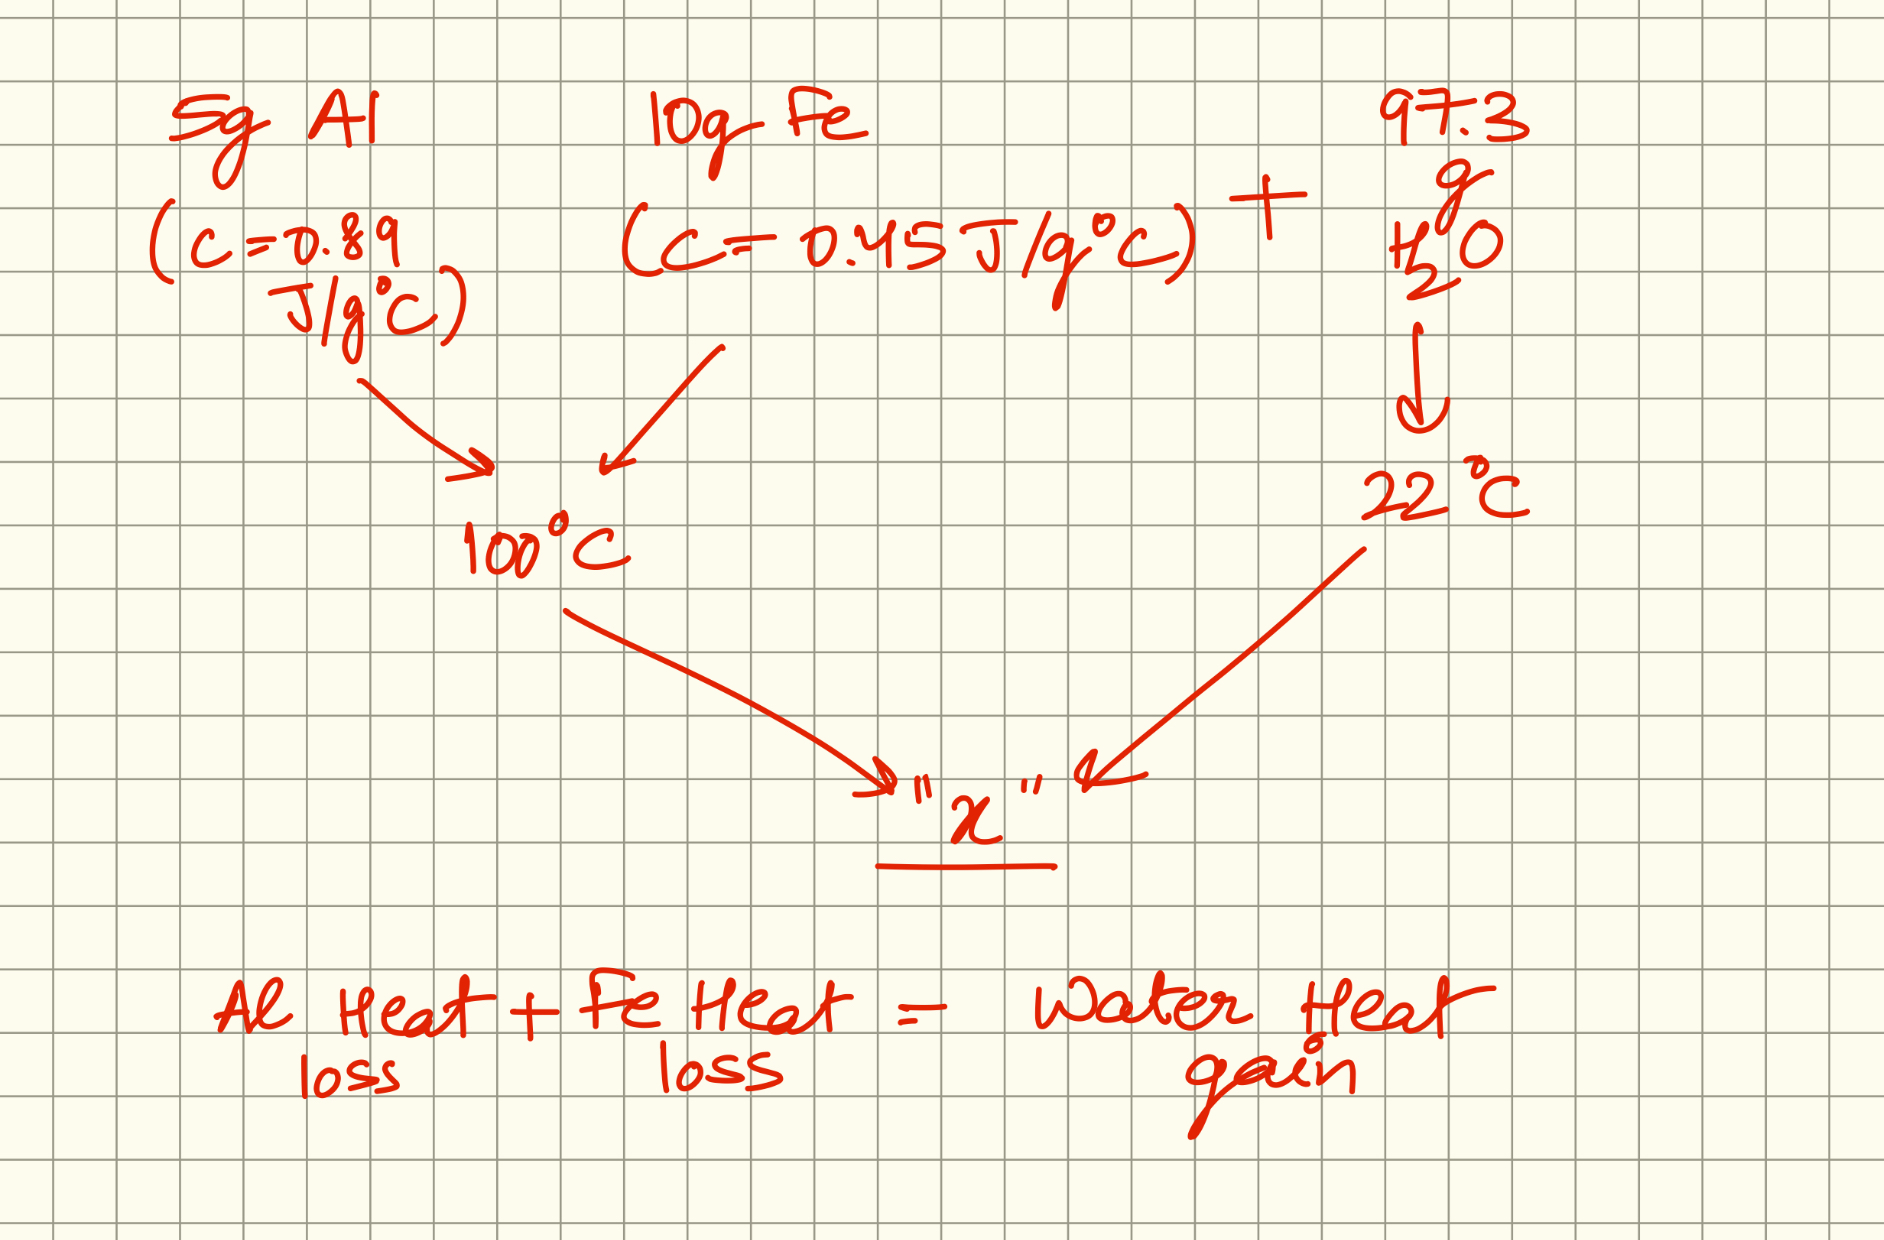 5g Al 10g Fe 97.3
g
(C=0.89 (C= 0.45 J/g°C) + H2O
J/g°C)
100°C 22°C
"x"
Al Heat + Fe Heat = Water Heat
loss loss gain